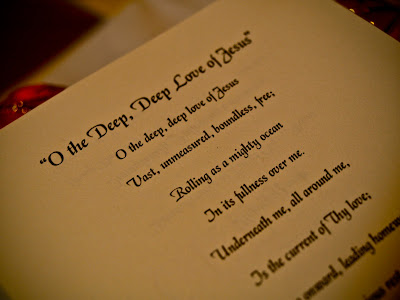 "O the Deep, Deep Love of Jesus"
O the deep, deep love of Jesus
Vast, unmeasured, boundless, free;
Rolling as a mighty ocean
In its fullness over me.
Underneath me, all around me,
Is the current of Thy love;
onward, leading